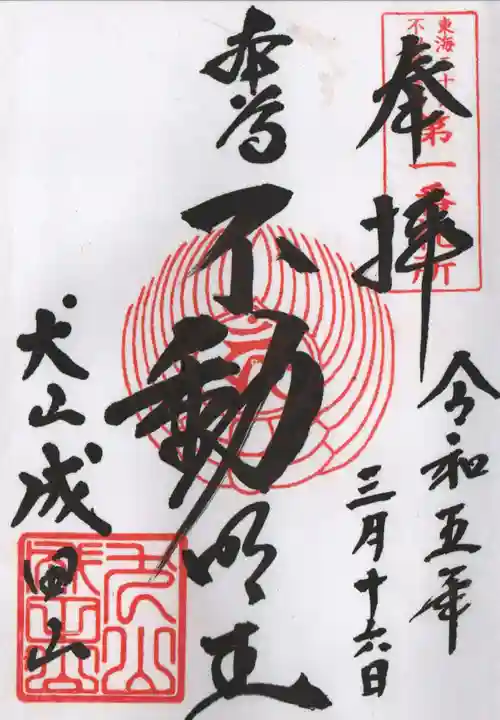 奉拝
東海三十
不
第一番札所
令和五年
三月十六日
本尊
不動明王
犬山成田山